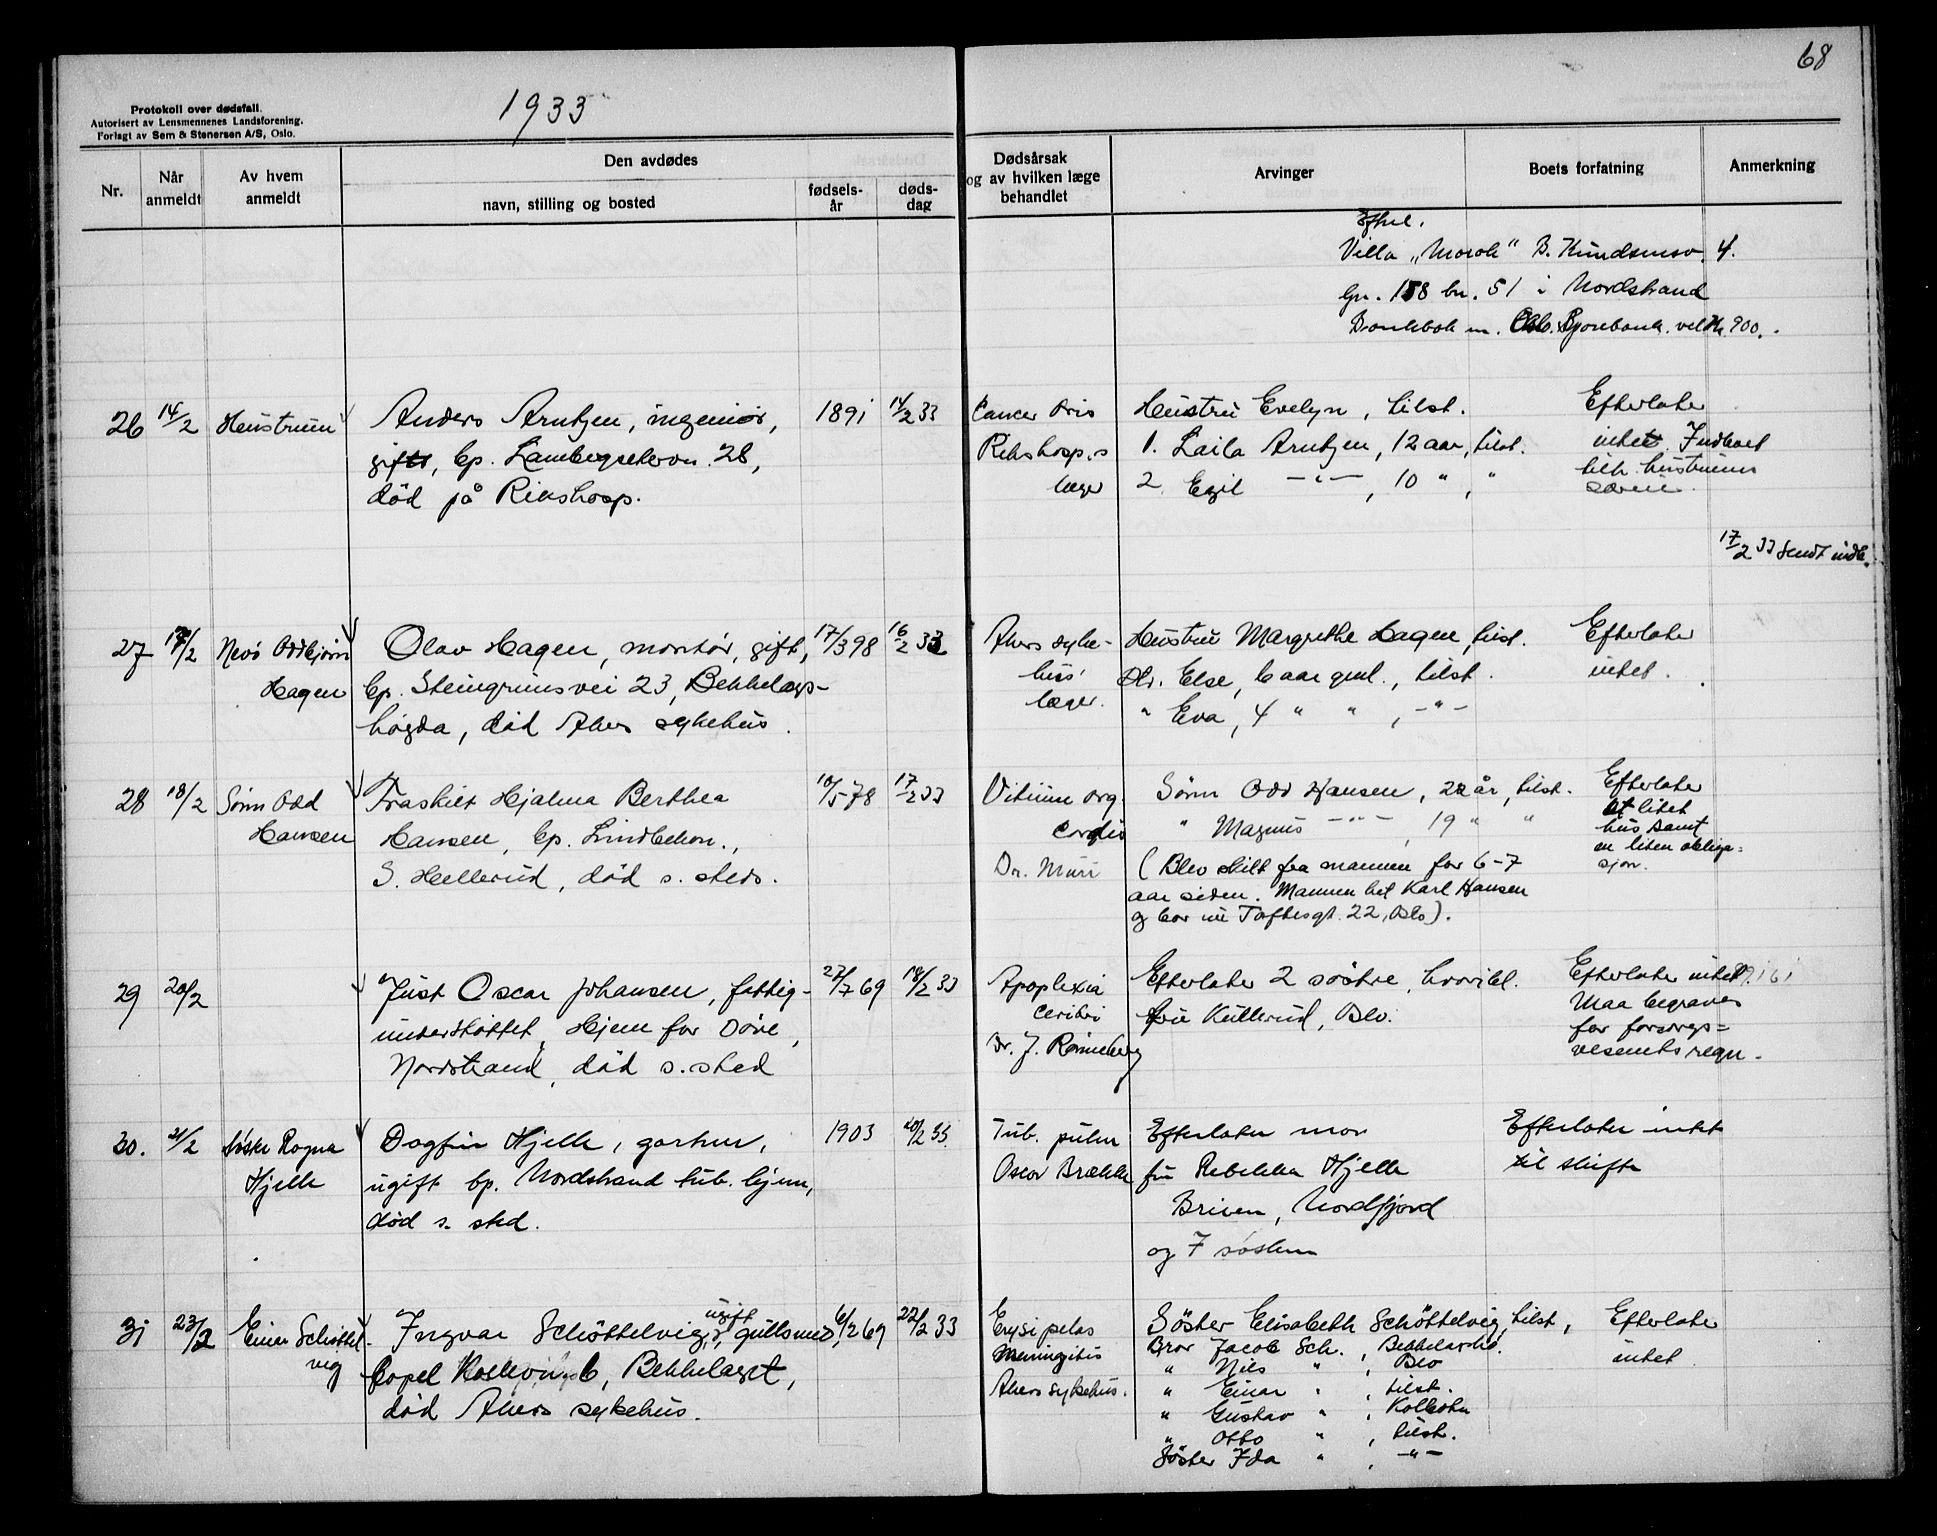 68
Protokoll over dødsfall.
Autorisert av Lensmennenes Landsforening.
Forlagt av Sem & Stenersen A/S, Oslo.
1933
Nr.
Når anmeldt
Av hvem anmeldt
Den avdødes
navn, stilling og bosted
fødsels-år
døds-dag
Dødsårsak og av hvilken læge behandlet
Arvinger
Boets forfatning
Anmerkning
Villa „ B. 4.
Gn. 158 bn. 51 i Nordstrand
Bankbok m. Oslo Sparebank. vel Kr. 900.
26 14/2 Hustruen
Anders Arntzen, ingeniør,
gift, bp. 28,
død på Rikshosp.
1891 14/2 33
Cancer
Rikshosp.s
læger
Hustru Evelyn, tilst.
1. Laila Arntzen, 12 aar, tilst.
2. Egil -"-, 10 " , "
Efterlater
intet. Indboet
tilh. hustruens
særeie.
17/2 33 Sendt
27 17/2 Nevø Oddbjørn
Hagen
Olav Hagen, montør, gift,
bp. Steingrims vei 23, Bekkelags-
høgda, død Akers sykehus.
17/3 98 16/2 33
Akers syke-
hus'
læger.
Hustru Margrethe Hagen, tilst.
Dtr. Else, 6 aar gml., tilst.
" Eva, 4 " " , -"-
Efterlater
intet.
28 18/2 Sønn Odd
Hansen
Hjalma Berthea
Hansen, bp.
S. Hellerud, død s. steds.
10/5 78 17/2 33
Vitium org.
cordis
Dr.
Sønn Odd Hansen, 22 år, tilst.
" Magnus -"- , 19 " "
(Blev skilt fra mannen for 6-7
aar siden. Mannen het Karl Hansen
og bor nu Toftesgt. 22, Oslo).
Efterlater
et litet
hus samt
en liten obliga=
sjon.
29 20/2
Just Oscar Johansen, fattig-
understøttet, Hjem for Døve,
Nordstrand, død s. sted
27/7 69 18/2 33
Apoplexia
ceribri
Dr. J. Rønneberg
Efterlater 2 søstre, hvoribl.
fru Kullerud, Oslo.
Efterlater intet.
Maa begraves
for forsorgs=
vesenets regn.
30. 21/2 Søster Ragna
Hjelle
Dagfin Hjelle, gartner,
ugift bp. Nordstrand tub. hjem,
død s. sted.
1903 20/2 33.
Tub. pulm
Oscar Brække
Efterlater mor
fru Rebekka Hjelle
Briven, Nordfjord
og 7 søsken
Efterlater intet
til skifte
31 23/2 Einar Schøttel-
vig
Ingvar Schøttelvig, ugift, gullsmed,
6, Bekkelaget,
død Akers sykehus.
6/2 69 22/2 33
Erysipelas
Meningitis
Akers sykehus.
Søster Elisabeth Schøttelvig, tilst,
Bror Jacob Sch. , Bekkelagshd.
" Nils " , Oslo
" Einar " , tilst.
" Gustav " , Kolbotn
" Otto " , tilst.
Søster Ida " , -"-
Efterlater
intet